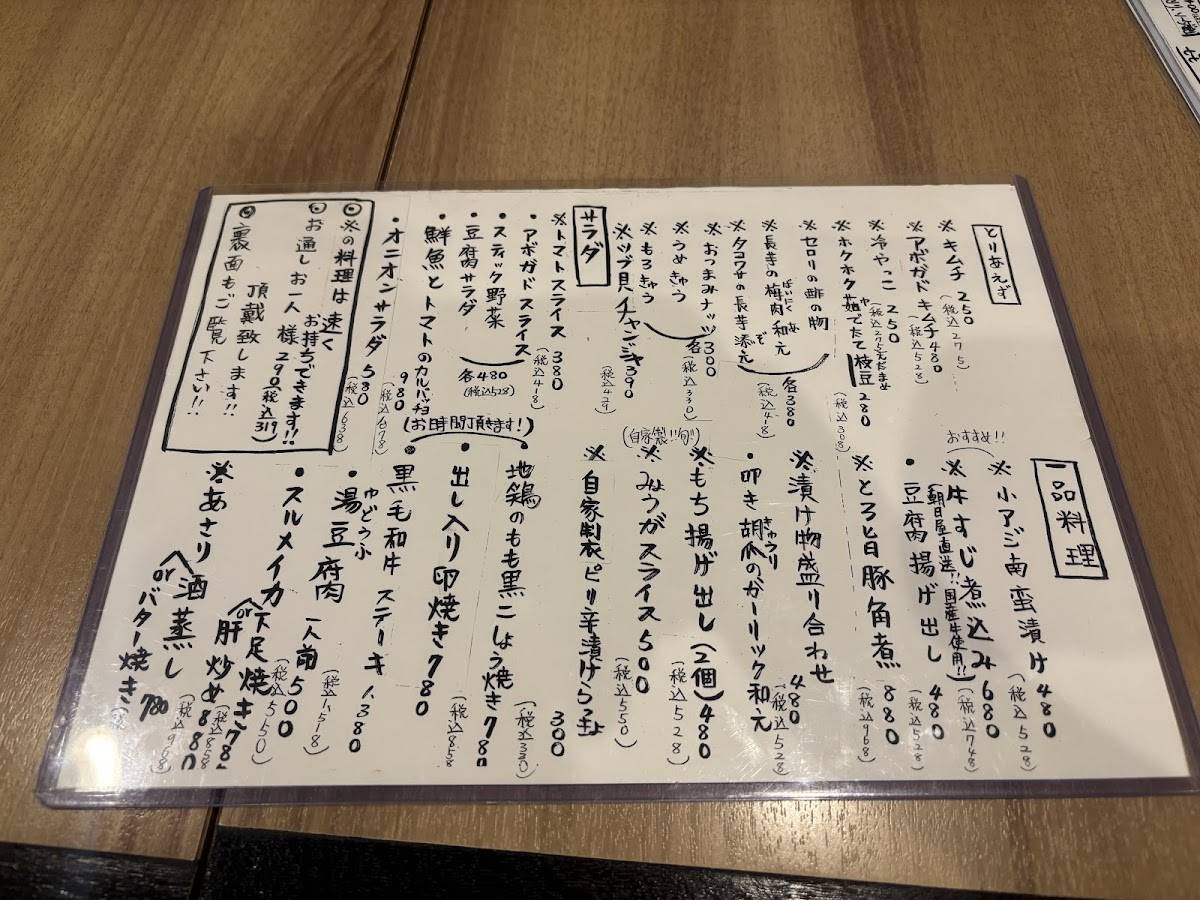 とりあえず
※キムチ 250
(税込275)
※アボガドキムチ 480
(税込528)
※冷やっこ 250
(税込275)
※ホクホク茹でたて枝豆 280
ゆ
えだまめ
(税込308)
※セロリの酢の物
※長芋の梅肉和え
ばいにく あ
※タコワサの長芋添え
ぞ
各380
(税込418)
※おつまみナッツ
※うめきゅう
※もろきゅう
各300
(税込330)
※ツブ貝チャンジャ 390
(税込429)
サラダ
※トマトスライス 380
(税込418)
・アボガドスライス
・スティック野菜
・豆腐サラダ
各480
(税込528)
・鮮魚とトマトのカルパッチョ
980
(税込1,078)
・オニオンサラダ 580
(税込638)
◎※の料理は速く
お持ちできます!!
◎お通しお一人様290(税込319)
頂戴致します!!
◎裏面もご覧下さい!!
一品料理
おすすめ!!
※小アジ南蛮漬け 480
(税込528)
※牛すじ煮込み 680
(朝日屋直送!!国産牛使用!!)
(税込748)
・豆腐肉揚げ出し 480
(税込528)
※とろ旨豚角煮 880
(税込968)
※漬け物盛り合わせ 480
(税込528)
・叩き胡瓜のガーリック和え
きゅうり
※もち揚げ出し(2個)480
(税込528)
(自家製!!旬!!)
※みょうがスライス 500
(税込550)
※自家製ピリ辛漬けらっきょ 300
(税込330)
(お時間頂きます!)
・地鶏のもも黒こしょう焼き 780
・出し入り卵焼き 780
(税込858
・黒毛和牛ステーキ 1,380
(税込1,518)
・湯豆腐肉 一人前500
ゆどうふ
(税込550)
・スルメイカ下足焼き 78
or肝炒め 880
(税込858
(税込968)
※あさり酒蒸し
orバター焼き 780